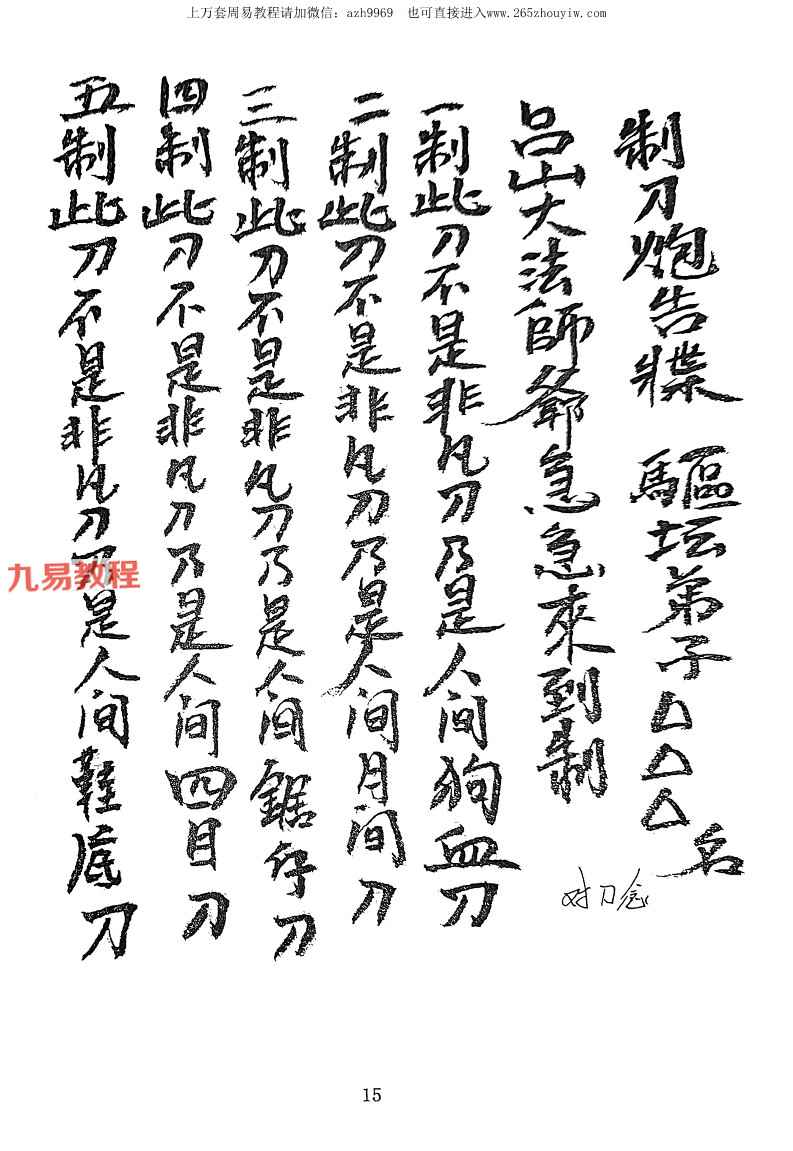 上万套周易教程请加微信：azh9969　也可直接进入www.265zhouyiw.com
制刀炮告牒　驅坛弟子△△△名
吕山大法師爺急急來到制
对刀念
一制此刀不是非凡刀乃是人间狗血刀
二制此刀不是非凡刀乃是人间月间刀
三制此刀不是非凡刀乃是人间鋸仔刀
四制此刀不是非凡刀乃是人间四目刀
五制此刀不是非凡刀乃是人间鞋底刀
九易教程
15